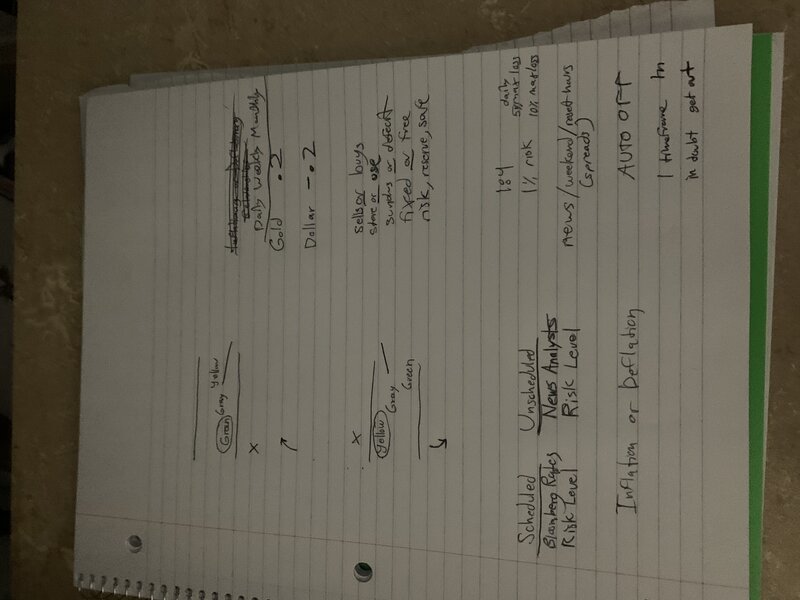 Green Gray Yellow
x Daily Weekly Monthly
Gold .2
Dollar -.2
x sells or buys
Yellow store or use
Gray surplus or defecit
Green fixed or free
risk, reserve, safe
daily
5% max loss
Scheduled Unscheduled 1% risk 10% max loss
Bloomberg Rates News Analysts
Risk Level Risk Level news/weekend/reset hours
(spreads)
Inflation or Deflation AUTO OFF
1 timeframe
in doubt get out